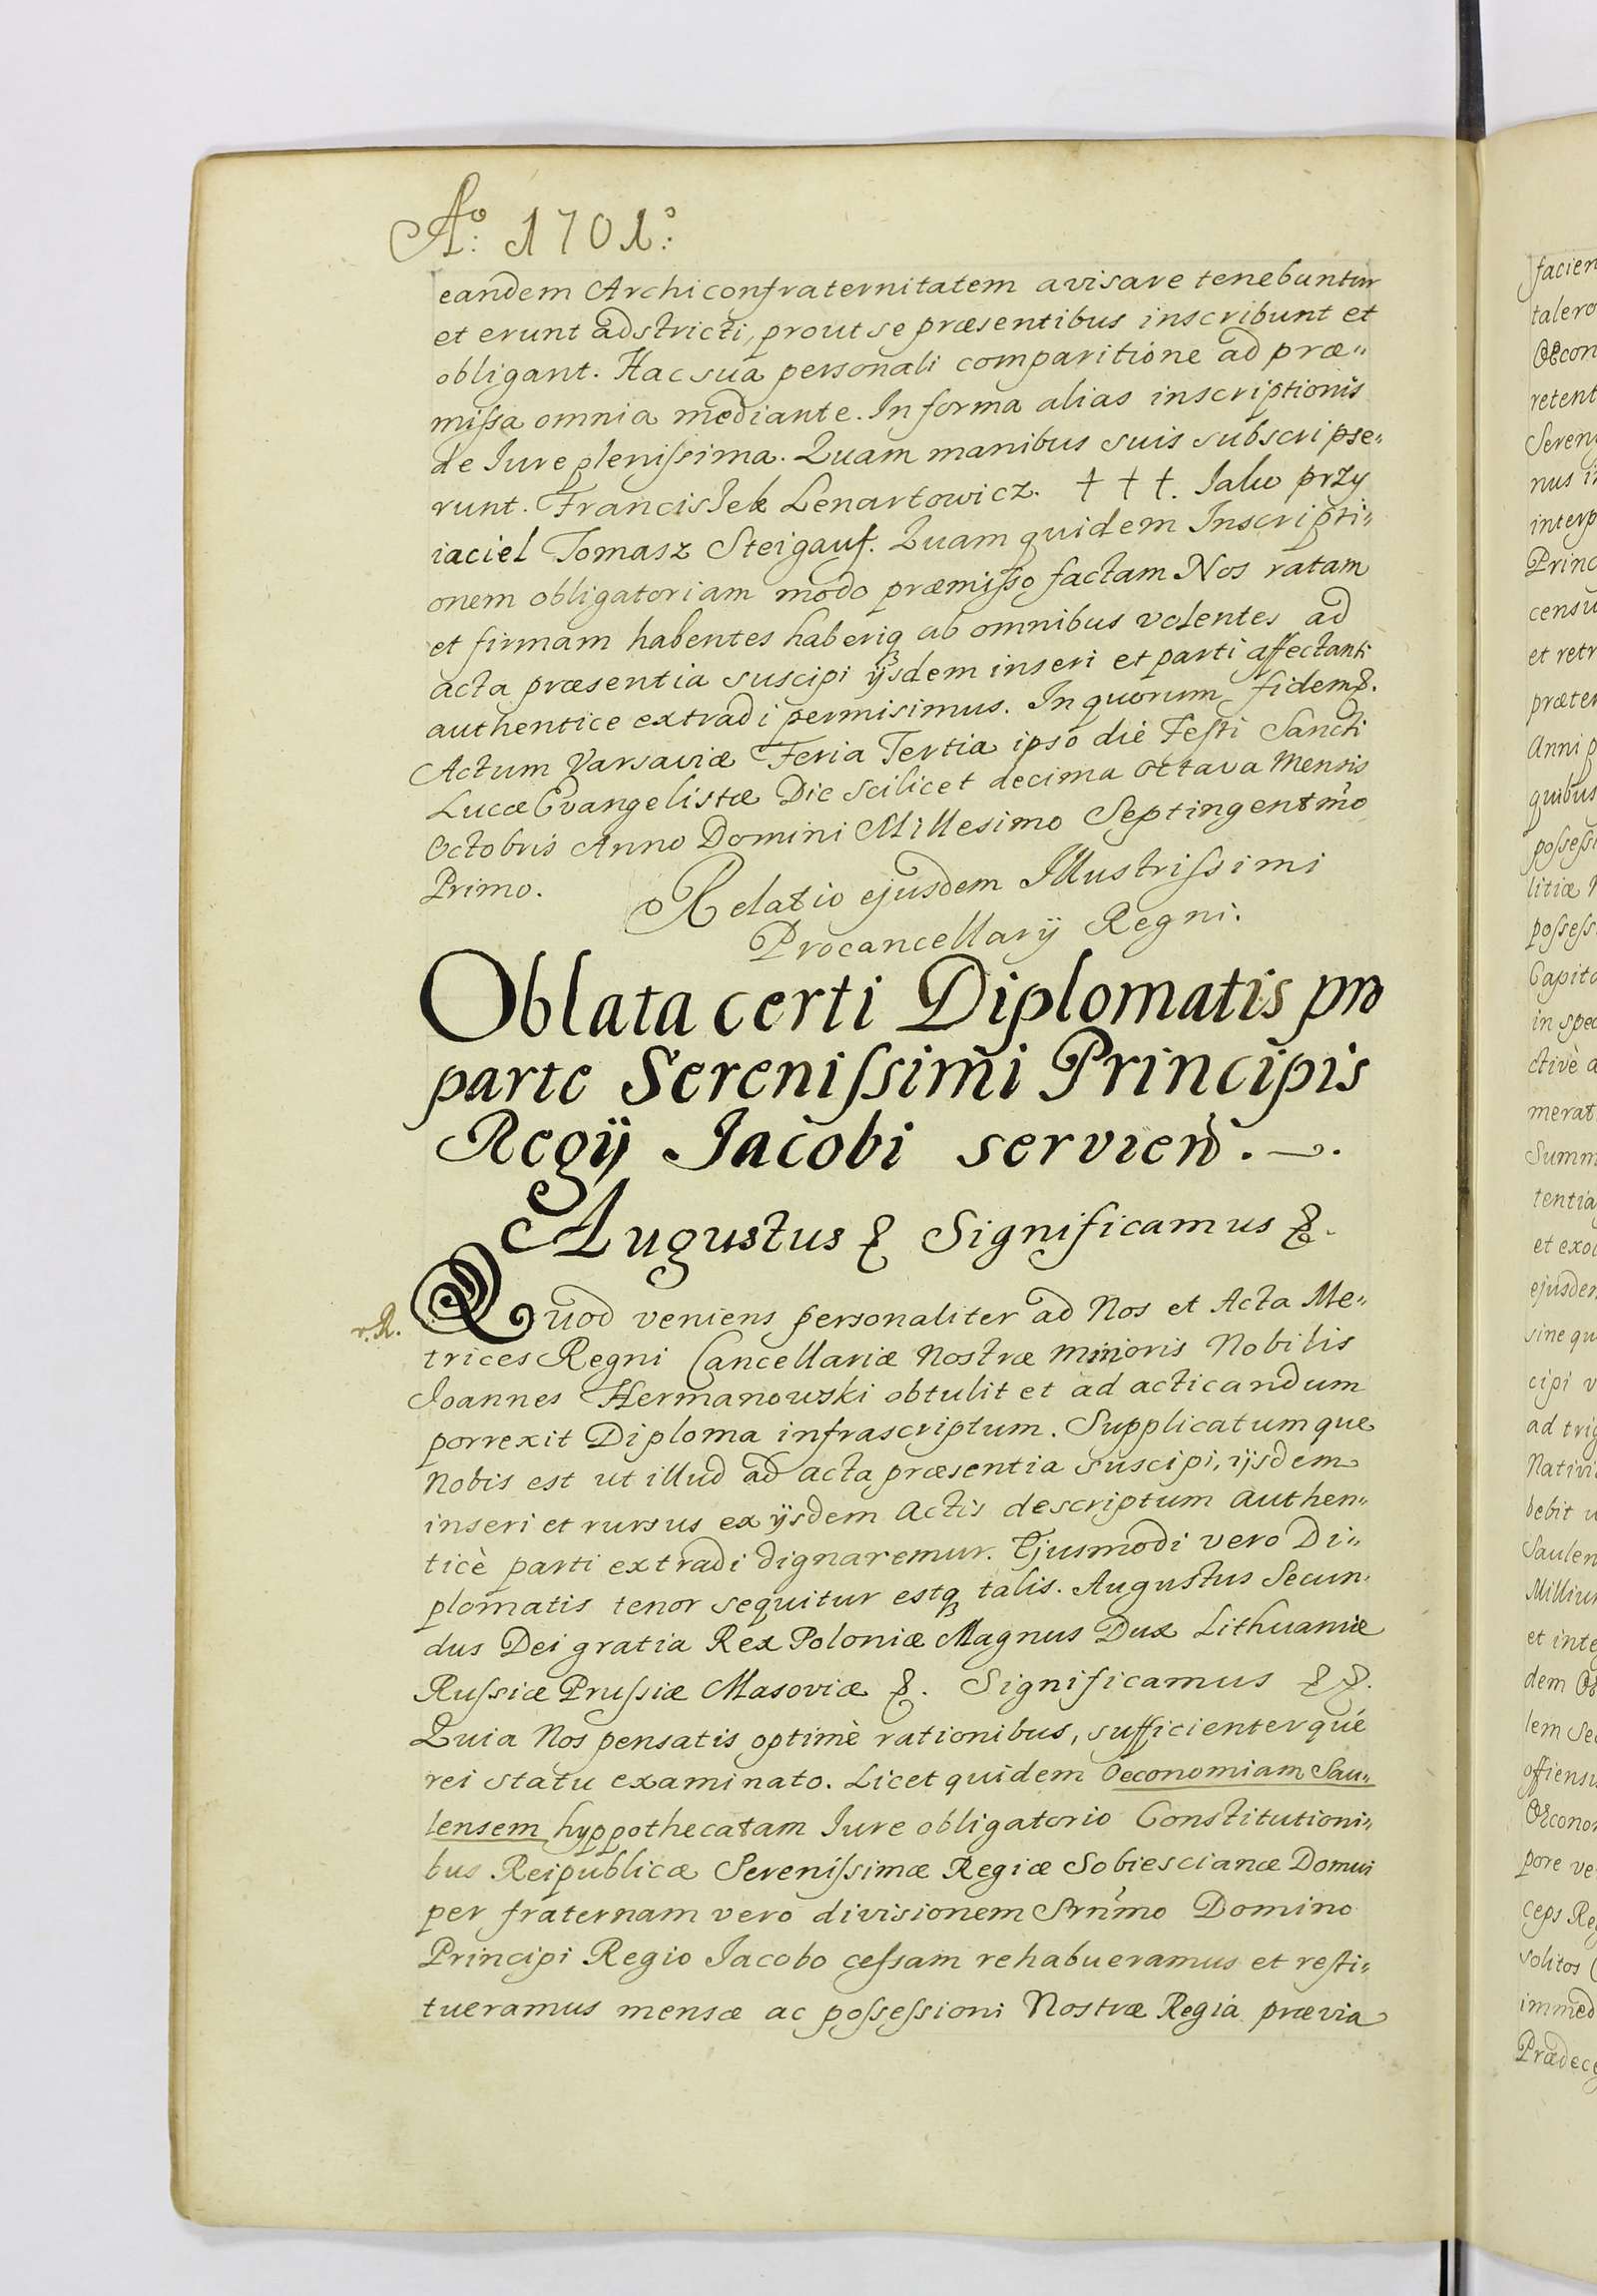 Ao: 1701o:
eandem Archiconfraternitatem avisare tenebuntur
et erunt adstricti, prout se præsentibus inscribunt et
obligant. Hac sua personali comparitione ad præ„
missa omnia mediante. In forma alias inscriptionis
de Iure plenissima. Quam manibus suis subscripse„
runt. Francisek Lenartowicz. † † †. Iako przy
iaciel Tomasz Steigauf. Quam quidem Inscripti„
onem obligatoriam modo præmisso factam Nos ratam
et firmam habentes haberiq ab omnibus volentes ad
acta præsentia suscipi ijsdem inseri et parti affectanti
authentice extradi permisimus. In quorum fidem &.
Actum Varsaviæ Feria Tertia ipso die Festi Sancti
Lucæ Evangelistæ Die scilicet decima octava Mensis
Octobris Anno Domini Millesimo Septingentmo
Primo.
Relatio ejusdem Illustrissimi
Procancellarij Regni.
Oblata certi Diplomatis pro
parte Serenissimi Principis
Regij Iacobi servien.
Augustus & Significamus &.
r. R.
Quod veniens personaliter ad Nos et Acta Me„
trices Regni Cancellariæ Nostræ minoris Nobilis
Ioannes Hermanowski obtulit et ad acticandum
porrexit Diploma infrascriptum. Supplicatumque
Nobis est ut illud ad acta præsentia suscipi, ijsdem
inseri et rursus ex ijsdem Actis descriptum authen„
ticè parti extradi dignaremur. Ejusmodi vero Di„
plomatis tenor sequitur estq talis. Augustus Secun„
dus Dei gratia Rex Poloniæ Magnus Dux Lithuaniæ
Russiæ Prussiæ Masoviæ &. Significamus &&.
Quia Nos pensatis optimè rationibus, sufficienterqué
rei statu examinato. Licet quidem Oeconomiam Sau„
lensem hyppothecatam Iure obligatorio Constitutioni„
bus Reipublicæ Serenissimæ Regiæ Sobiescianæ Domui
per fraternam vero divisionem Srnmo Domino
Principi Regio Iacobo cessam rehabueramus et resti„
tueramus mensæ ac possessioni Nostræ Regia prævia
facien
talero
Oecon
retent
Seren
nus i
interp
Princ
censu
et retr
præter
Anni p
quibus
possessi
litiæ
possess
Capita
in spec
ctivè a
merat
Summ
tentia
et exo
ejusdem
sine qu
cipi v
ad trig
Nativi
debit
Saulen
Milliu
et inte
dem
lem Se
offiensi
Oecono
pore ve
ceps Re
solitos
immed
Prædece